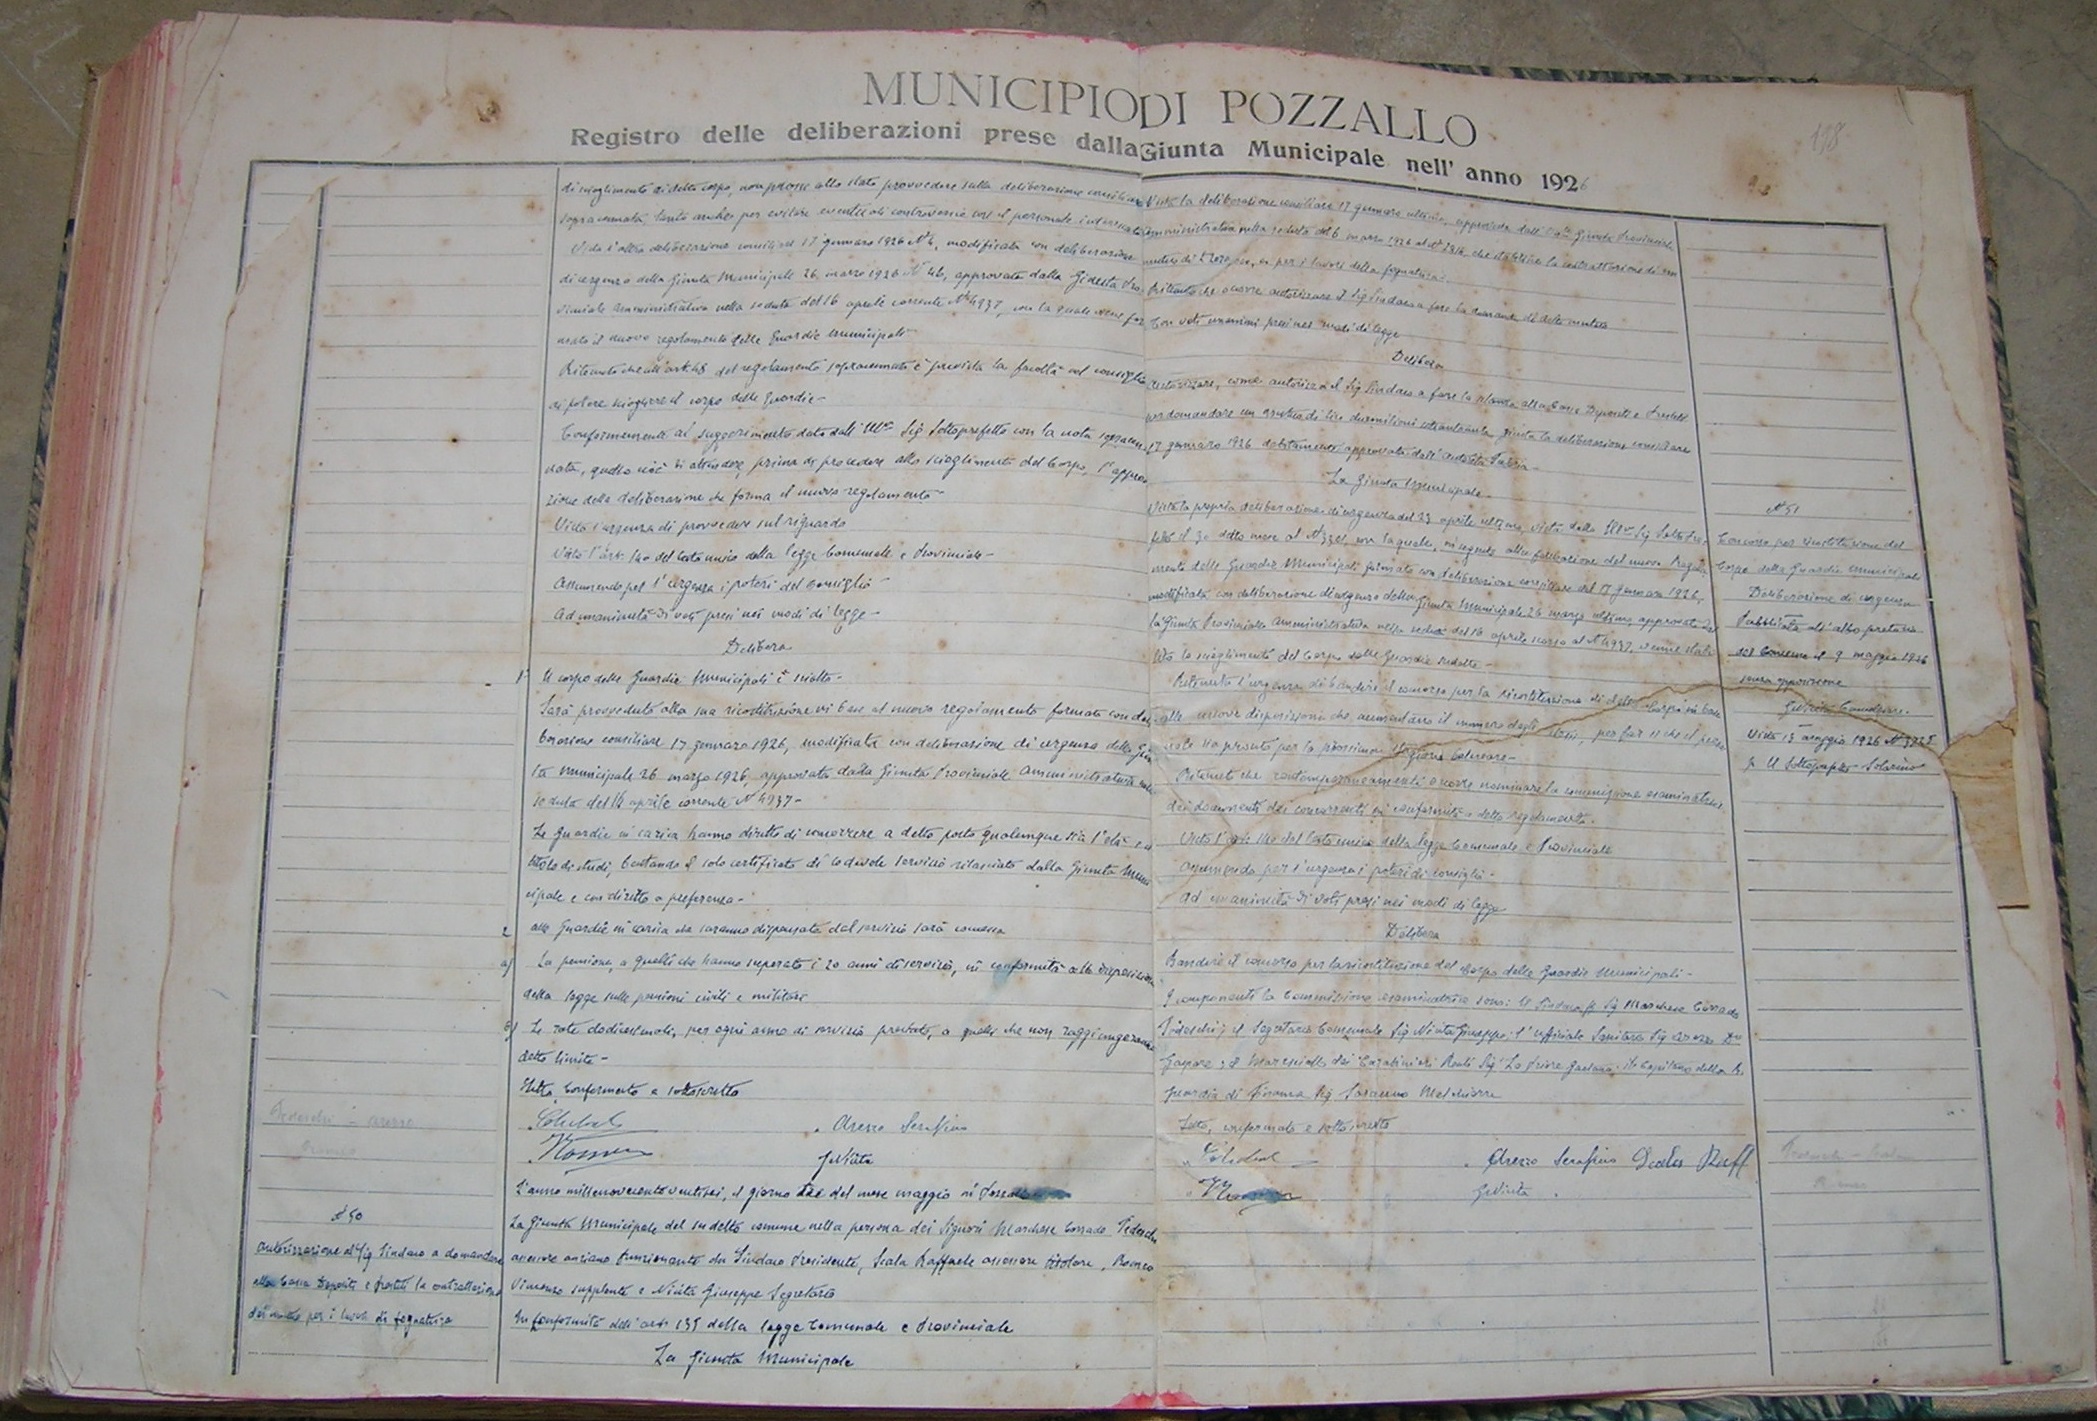 MUNICIPIO DI POZZALLO
Registro delle deliberazioni prese dalla Giunta Municipale nell' anno 1926
198
di scioglimento di detto corpo, non potersi allo stato provvedere sulla deliberazione consiliare
sopracennata, tanto anche per evitare eventuali controversie col il personale interessato
Vista l'altra deliberazione consiliare 17 gennaro 1926 Nº 6, modificata con deliberazione
di urgenza della Giunta Municipale 26 marzo 1926 Nº 46, approvata dalla Giunta Pro
vinciale Amministrativa nella seduta del 16 aprile corrente Nº 4937, con la quale venne for
mato il nuovo regolamento delle Guardie Municipali
Ritenuto che all'art. 48 del regolamento sopracennato è prevista la facoltà nel consiglio
di potere sciogliere il corpo delle Guardie-
Conformemente al suggerimento dato dall' Ill.mo Sig Sottoprefetto con la nota sopracen
nata, quello cioè di attendere prima di procedere allo scioglimento del Corpo, l'approva
zione della deliberazione che forma il nuovo regolamento-
Vista l'urgenza di provvedere sul riguardo
Visto l'art. 140 del testo unico della legge Comunale e Provinciale-
Assumendo per l'urgenza i poteri del Consiglio-
Ad unanimità di voti presi nei modi di legge-
Delibera
1º Il corpo delle Guardie Municipali è sciolto-
Sarà provveduto alla sua ricostituzione in base al nuovo regolamento formato con deli
berazione consiliare 17 gennaro 1926, modificata con deliberazione di urgenza della Giun
ta Municipale 26 marzo 1926, approvata dalla Giunta Provinciale Amministrativa nella
seduta del 16 aprile corrente Nº 4937-
Le Guardie in carica hanno diritto di concorrere a detto posto qualunque sia l'età e il
titolo di studi, bastando il solo certificato di lodevole servizio rilasciato dalla Giunta Muni
cipale e con diritto a preferenza-
2 alle Guardie in carica che saranno dispensate dal servizio sarà concessa
a) La pensione, a quelli che hanno superato i 20 anni di servizio, in conformità alle disposizioni
della legge sulle pensioni civili e militari
b) Le rate dodicesimali, per ogni anno di servizio prestato, a quelli che non raggiungeranno
detto limite-
Letto, Confermato e sottoscritto
Arezzo Serafino
GNiuta
L'anno millenovecentoventisei, il giorno tre del mese maggio in Pozzallo
Nº 50
Autorizzazione al Sig Sindaco a domandare
alla Cassa Depositi e Prestiti la contrattazione
del mutuo per i lavori di fognatura
La Giunta Municipale del sudetto comune nella persona dei Signori Marchese Corrado Tedeschi
assessore anziano funzionante da Sindaco Presidente, Scala Raffaele assessore titolare, Romeo
Vincenzo supplente e Niuta Giuseppe Segretario
In conformità dell'art. 135 della legge Comunale e Provinciale
La Giunta Municipale
Vista la deliberazione consiliare 17 gennaro ultimo, approvata dall'On.le Giunta Provinciale
Amministrativa nella seduta del 6 marzo 1926 al Nº che stabilisce la contrattazione di un
mutuo di per i lavori della fognatura-
Ritenuto che occorre autorizzare il Sig Sindaco a fare la domanda di detto mutuo
Con voti unanimi presi nei modi di legge
Delibera
Autorizzare, come autorizza il Sig Sindaco a fare la domanda alla Cassa Depositi e Prestiti
per domandare un mutuo di lire duemilioni giusta la deliberazione consiliare
17 gennaro 1926 debitamente approvata dall'autorità Tutoria-
La Giunta Municipale-
Vista la propria deliberazione di urgenza del 23 aprile ultimo, vista dallo Ill.mo Sig Sottopre
fetto il 30 detto mese al Nº con la quale, in seguito alla formazione del nuovo Regola
mento delle Guardie Municipali formato con deliberazione consiliare del 17 gennaro 1926,
modificata con deliberazione d'urgenza della Giunta Municipale 26 marzo ultimo, approvata dal
la Giunta Provinciale Amministrativa nella seduta del 16 aprile scorso al Nº 4937, venne stabi
lito lo scioglimento del Corpo delle Guardie sudette-
Ritenuta l'urgenza di bandire il concorso per la ricostituzione di detto Corpo in base
alle nuove disposizioni che aumentano il numero degli per far si che il perso
nale sia pronto per la prossima stagione balneare-
Ritenuto che contemporaneamente occorre nominare la commissione esaminatrice
dei documenti dei concorrenti in conformità a detto regolamento-
Visto l'art. 140 del testo unico della legge Comunale e Provinciale
Assumendo per l'urgenza i poteri di consiglio-
Ad unanimità di voti presi nei modi di legge
Delibera
Bandire il concorso per la ricostituzione del Corpo delle Guardie Municipali-
I componenti la Commissione esaminatrice sono: Il Sindaco Sig Marchese Corrado
Tedeschi; il Segretario Comunale Sig Niuta Giuseppe; l'Ufficiale Sanitario Sig Arezzo Dr
Gaspare; il Maresciallo dei Carabinieri Reali Sig Lo Priore Gaetano; il Capitano della R.
Guardia di Finanza Sig Saraceno Melchiorre
Letto, confermato e sottoscritto
Arezzo Serafino Scala Raff
GNiuta
Nº 51
Concorso per ricostituzione del
Corpo delle Guardie Municipali
Deliberazione di urgenza
Pubblicata all'albo pretorio
del Comune il 9 maggio 1926
senza opposizione
Visto 15 maggio 1926 Nº
Il Sottoprefetto Solarino